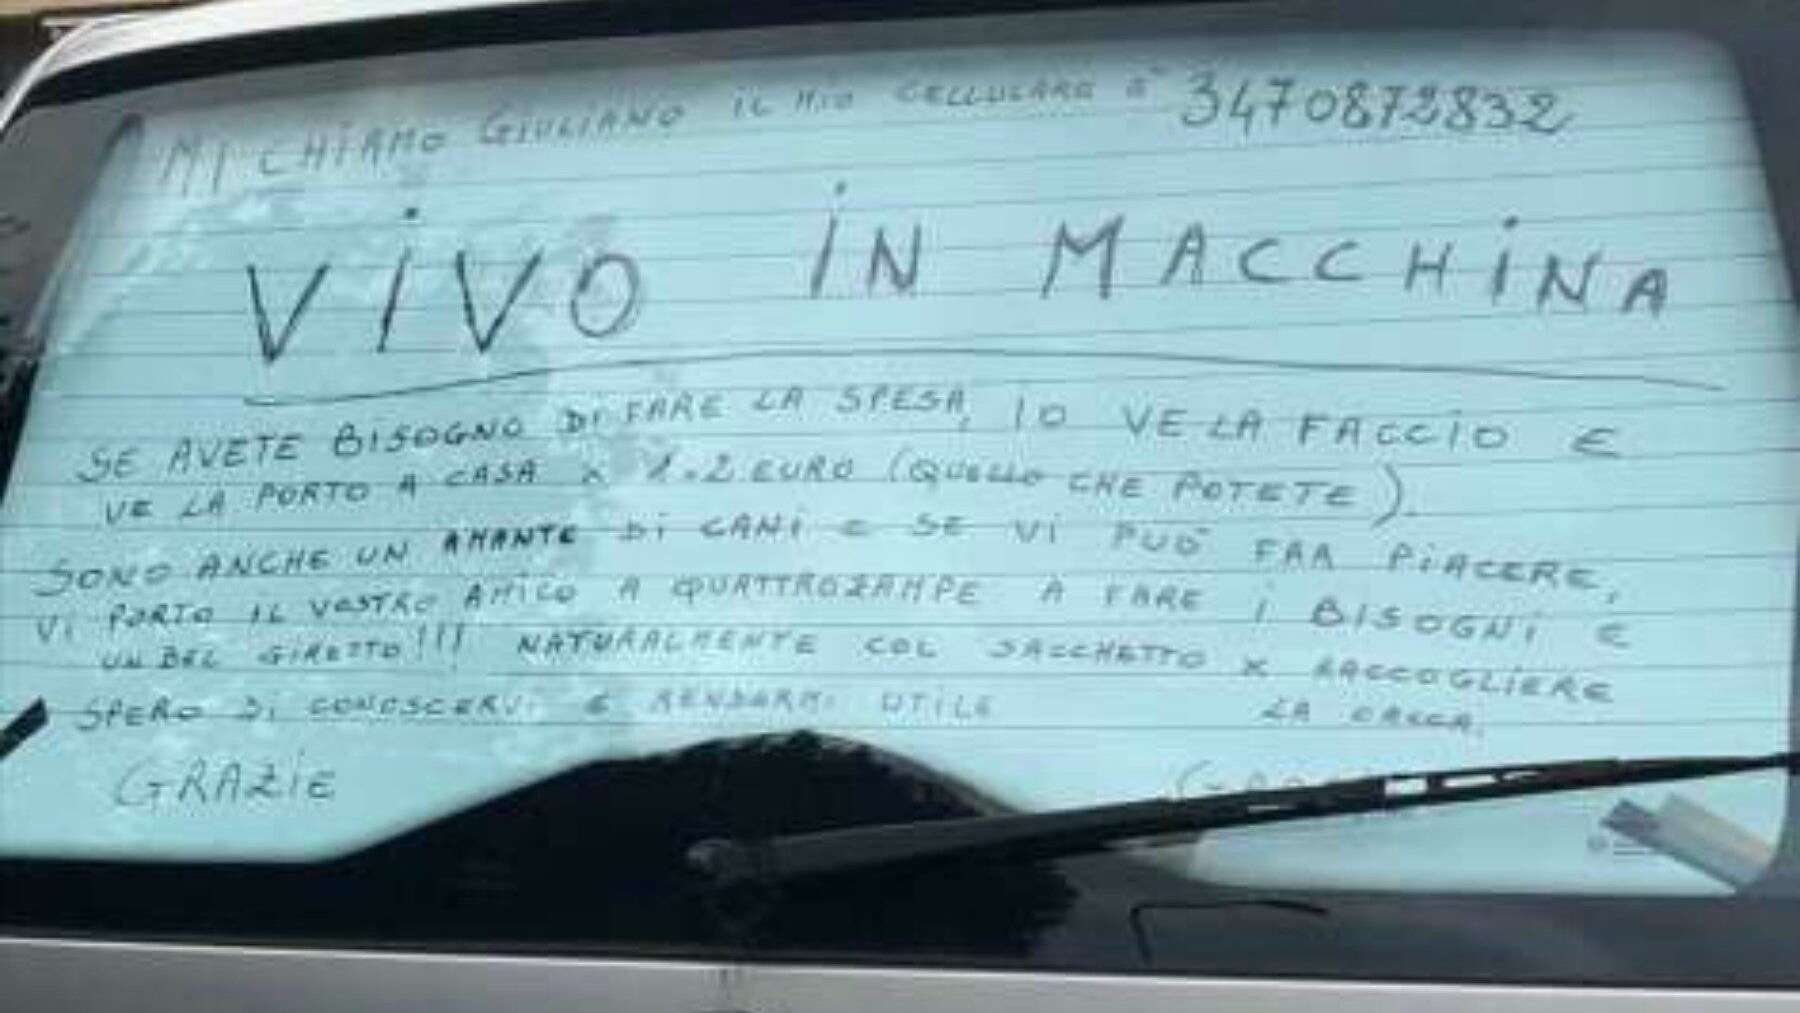 MI CHIAMO GIULIANO IL MIO CELLULARE È 3470872832
VIVO IN MACCHINA
SE AVETE BISOGNO DI FARE LA SPESA, IO VE LA FACCIO E
VE LA PORTO A CASA X 1.2 EURO (QUELLO CHE POTETE).
SONO ANCHE UN AMANTE DI CANI E SE VI PUÒ FAR PIACERE,
VI PORTO IL VOSTRO AMICO A QUATTROZAMPE A FARE I BISOGNI E
UN BEL GIRETTO!!! NATURALMENTE COL SACCHETTO X RACCOGLIERE
LA CACCA.
SPERO DI CONOSCERVI E RENDERMI UTILE
GRAZIE